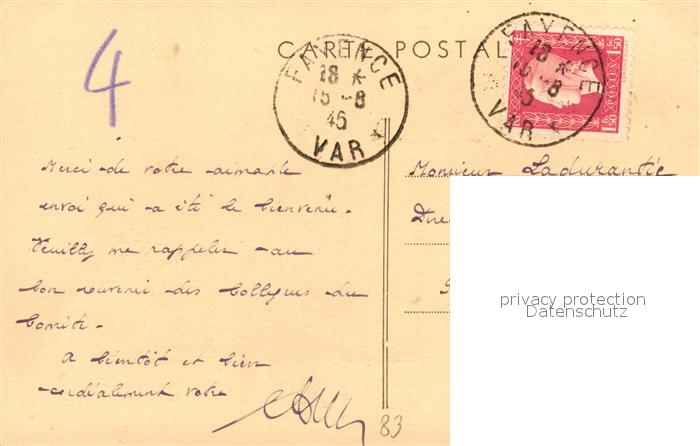 4
CARTE POSTALE
FAYENCE
18 *
15 -8
45
VAR *
FAYENCE
18 *
15 -8
45
VAR *
1F50
POSTES
1F50
Merci de votre aimable
envoi qui a été le bienvenu.
Veuillez me rappeler au
bon souvenir des Collègues du
Comité.
A bientôt et bien
cordialement votre
Monsieur Ladurantie
Dire
privacy protection
Datenschutz
83